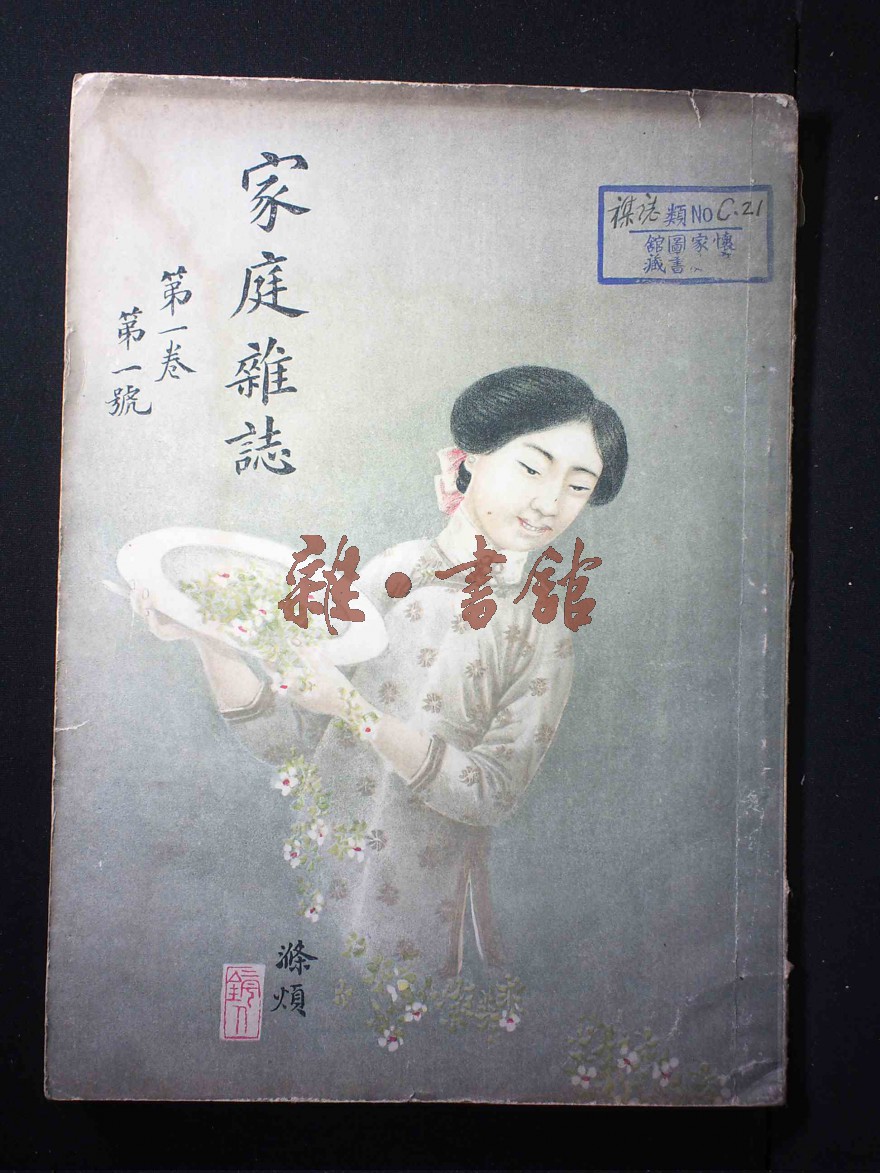 家庭雜誌
第一卷
第一號
襍誌類NO C.21
館圖家懷
藏書
雜·書館
滌煩